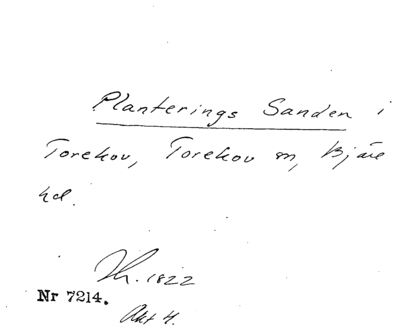 Planterings Sanden i
Torekov, Torekov sn, Bjäre
hd.
1822
Nr 7214.
Akt 4.